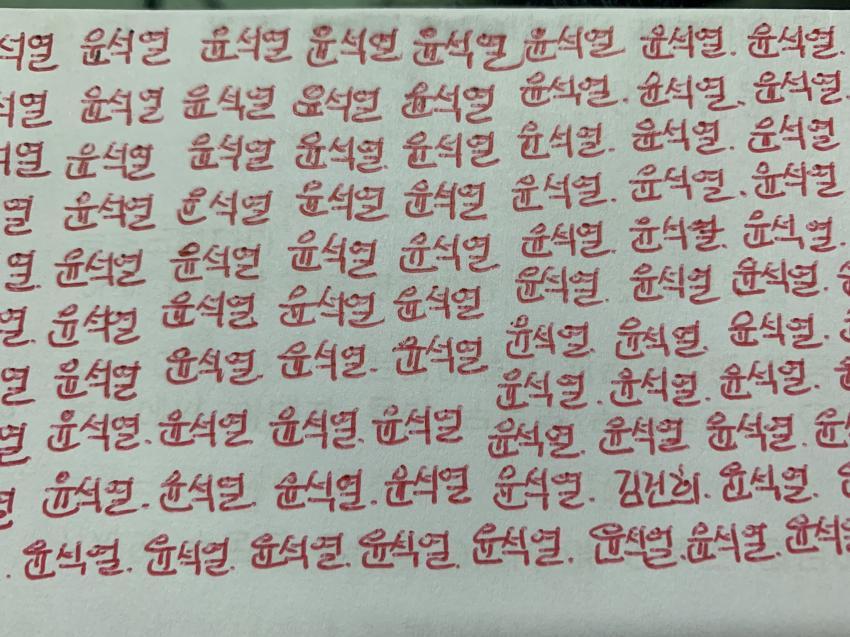 석열 윤석열 윤석열 윤석열 윤석열 윤석열 윤석열. 윤석열.
석열 윤석열 윤석열 윤석열 윤석열 윤석열. 윤석열. 윤석열.
석열 윤석열 윤석열 윤석열 윤석열 윤석열. 윤석열. 윤석열
열 윤석열 윤석열 윤석열 윤석열 윤석열. 윤석열. 윤석열
열. 윤석열 윤석열 윤석열 윤석열 윤석열. 윤석열. 윤석열.
열. 윤석열 윤석열 윤석열 윤석열 윤석열. 윤석열 윤석열.
열 윤석열 윤석열. 윤석열. 윤석열 윤석열. 윤석열. 윤석열.
열 윤석열. 윤석열 윤석열. 윤석열 윤석열. 윤석열. 윤석열.
열 윤석열. 윤석열. 윤석열. 윤석열 윤석열. 윤석열 윤석열.
윤석열. 윤석열. 윤석열. 윤석열. 윤석열. 김건희. 윤석열.
윤석열. 윤석열. 윤석열. 윤석열. 윤석열.